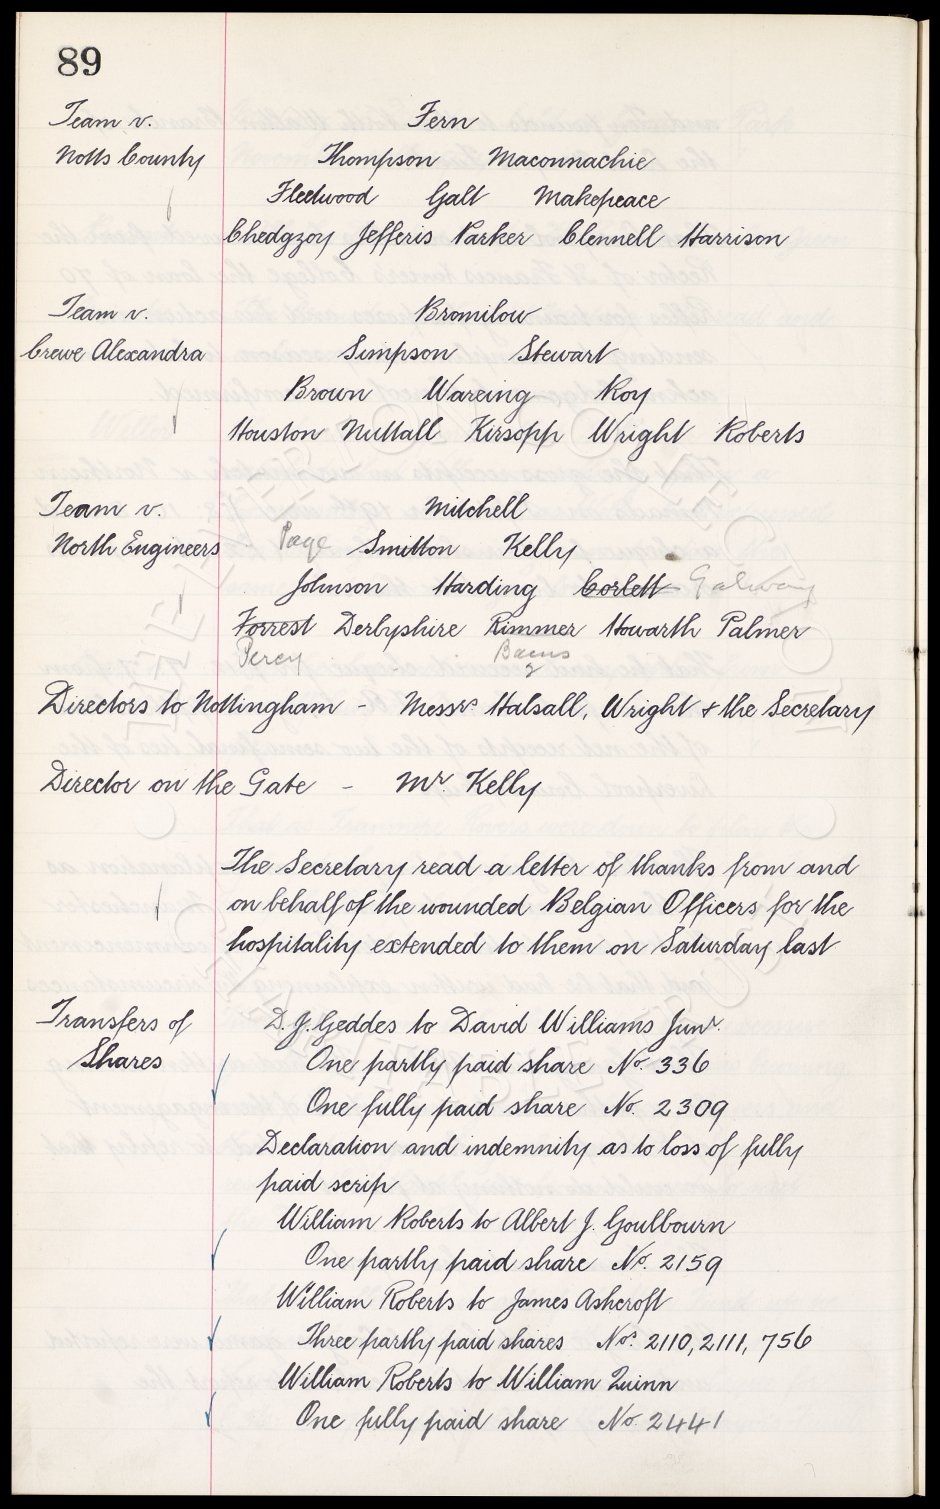 89
Team v. Fern
Notts County Thompson Maconnachie
Fleetwood Galt Makepeace
Chedgzoy Jefferis Parker Clennell Harrison
Team v. Bromilow
Crewe Alexandra Simpson Stewart
Brown Wareing Roy
Houston Nuttall Kirsopp Wright Roberts
Team v. Mitchell
North Engineers Page Smitton Kelly
Johnson Harding Corlett Galway
Forrest Derbyshire Rimmer Howarth Palmer
Percy
Directors to Nottingham - Messrs Halsall, Wright & the Secretary
Director on the Gate - Mr. Kelly
The Secretary read a letter of thanks from and
on behalf of the wounded Belgian Officers for the
hospitality extended to them on Saturday last
Transfers of D. J. Geddes to David Williams Junr.
Shares One partly paid share No. 336
One fully paid share No. 2309
Declaration and indemnity as to loss of fully
paid scrip
William Roberts to Albert J. Goulbourn
One partly paid share No. 2159
William Roberts to James Ashcroft
Three partly paid shares Nos. 2110, 2111, 756
William Roberts to William Quinn
One fully paid share No. 2441